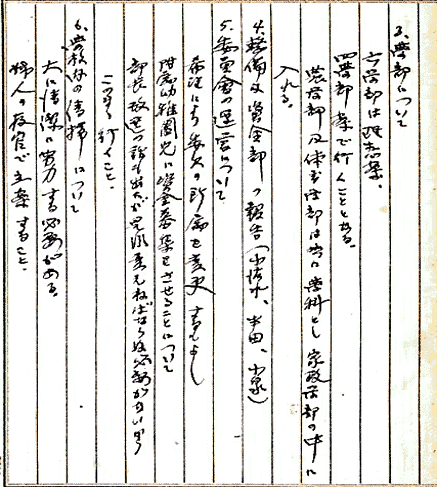 3. 学部について
六学部は理想案、
四学部案で行くこととなる。
農学部及体育学部は学科とし家政学部の中に
入れる。
4. 整備及資金部の報告(小清水、半田、小泉)
5. 委員会の運営について
希望により委員の所属を変更するもよし
附属幼稚園児に資金募集をさせることについて
部長改選の話も出たが見 ねばならぬ必要がないから
このまゝ行くこと。
6. 学校内の清掃について
大に清潔に努力する必要がある。
婦人の教官で立案すること。